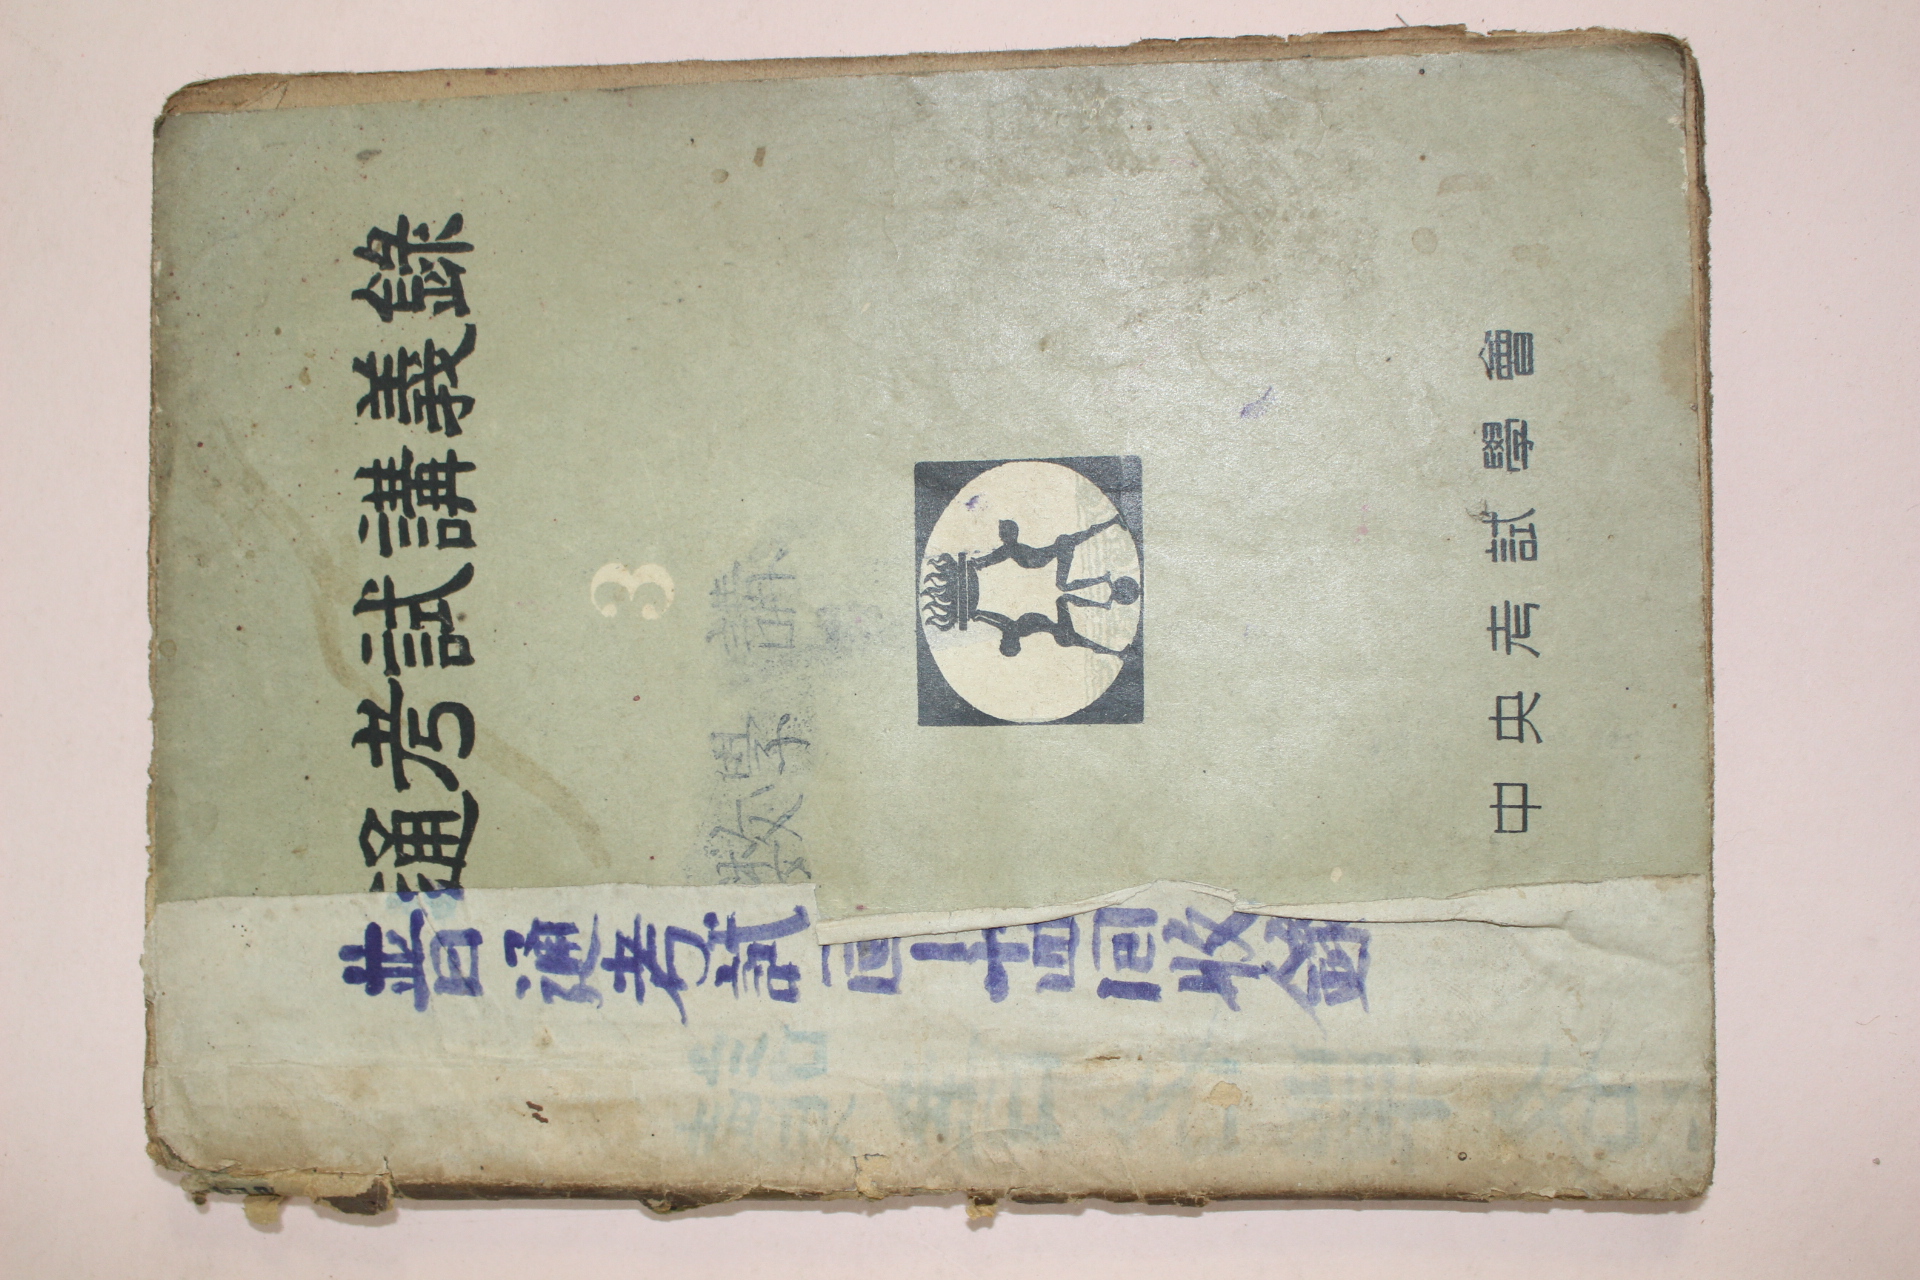 普通考試講義錄
3
數學 講
普通考試一回-十四回收錄
中央考試學會